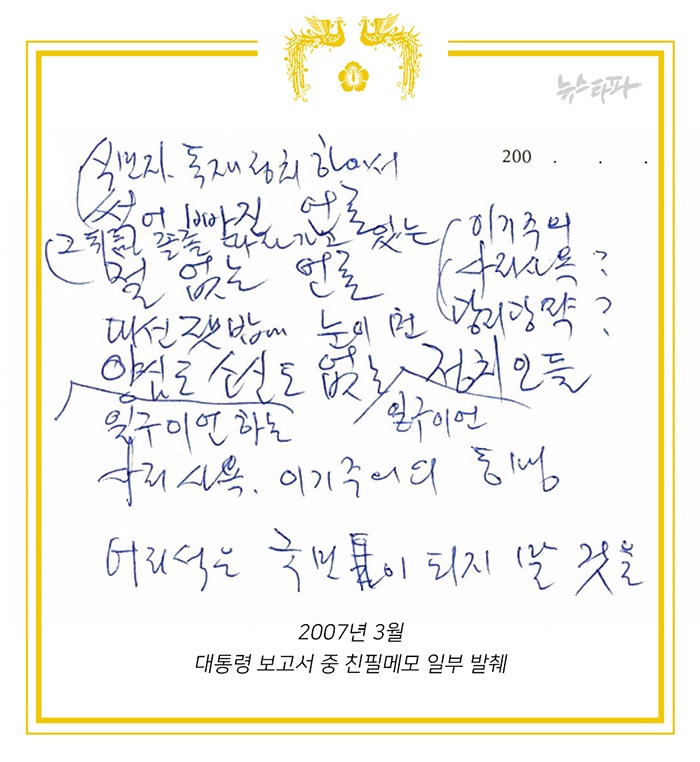 뉴스타파
200 . . .
식민지. 독재정치 하에서
썩어 빠진 언론
(그 뒤를 졸졸 따라가고 있는
철 없는 언론
(이기주의
사리사욕?
당리당략?
대선 잿밥에 눈이 먼
양심도 소신도 없는 정치인들
일구이언 하는
일구이언
사리사욕. 이기주의의
어리석은 국민이 되지 말 것을
2007년 3월
대통령 보고서 중 친필메모 일부 발췌